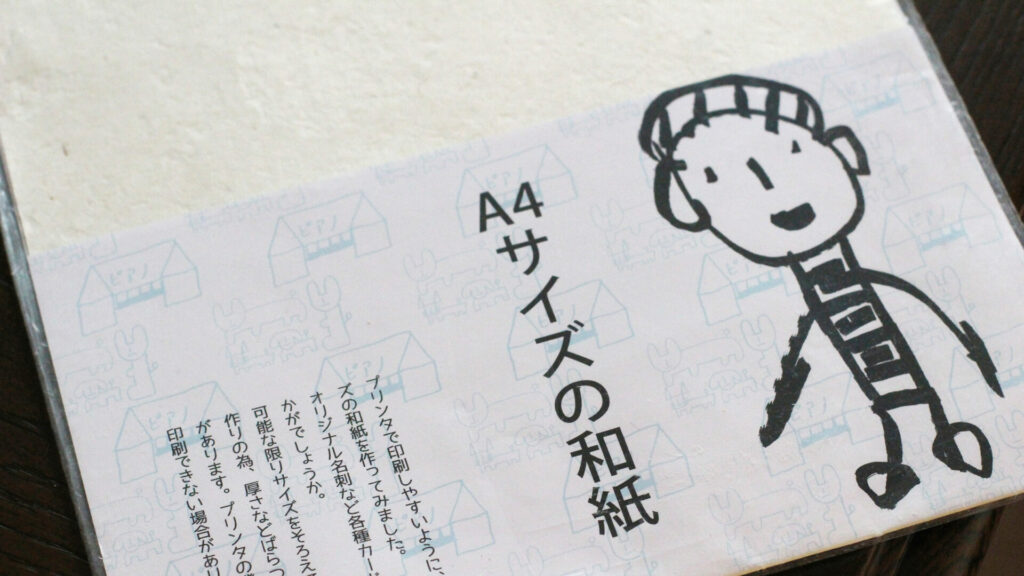 A4サイズの和紙
プリンタで印刷しやすいように、
ズの和紙を作ってみました。
オリジナル名刺など各種カード
かがでしょうか。
可能な限りサイズをそろえて
作りの為、厚さなどばらつ
があります。プリンタの
印刷できない場合があり
ピアノ
ピアノ